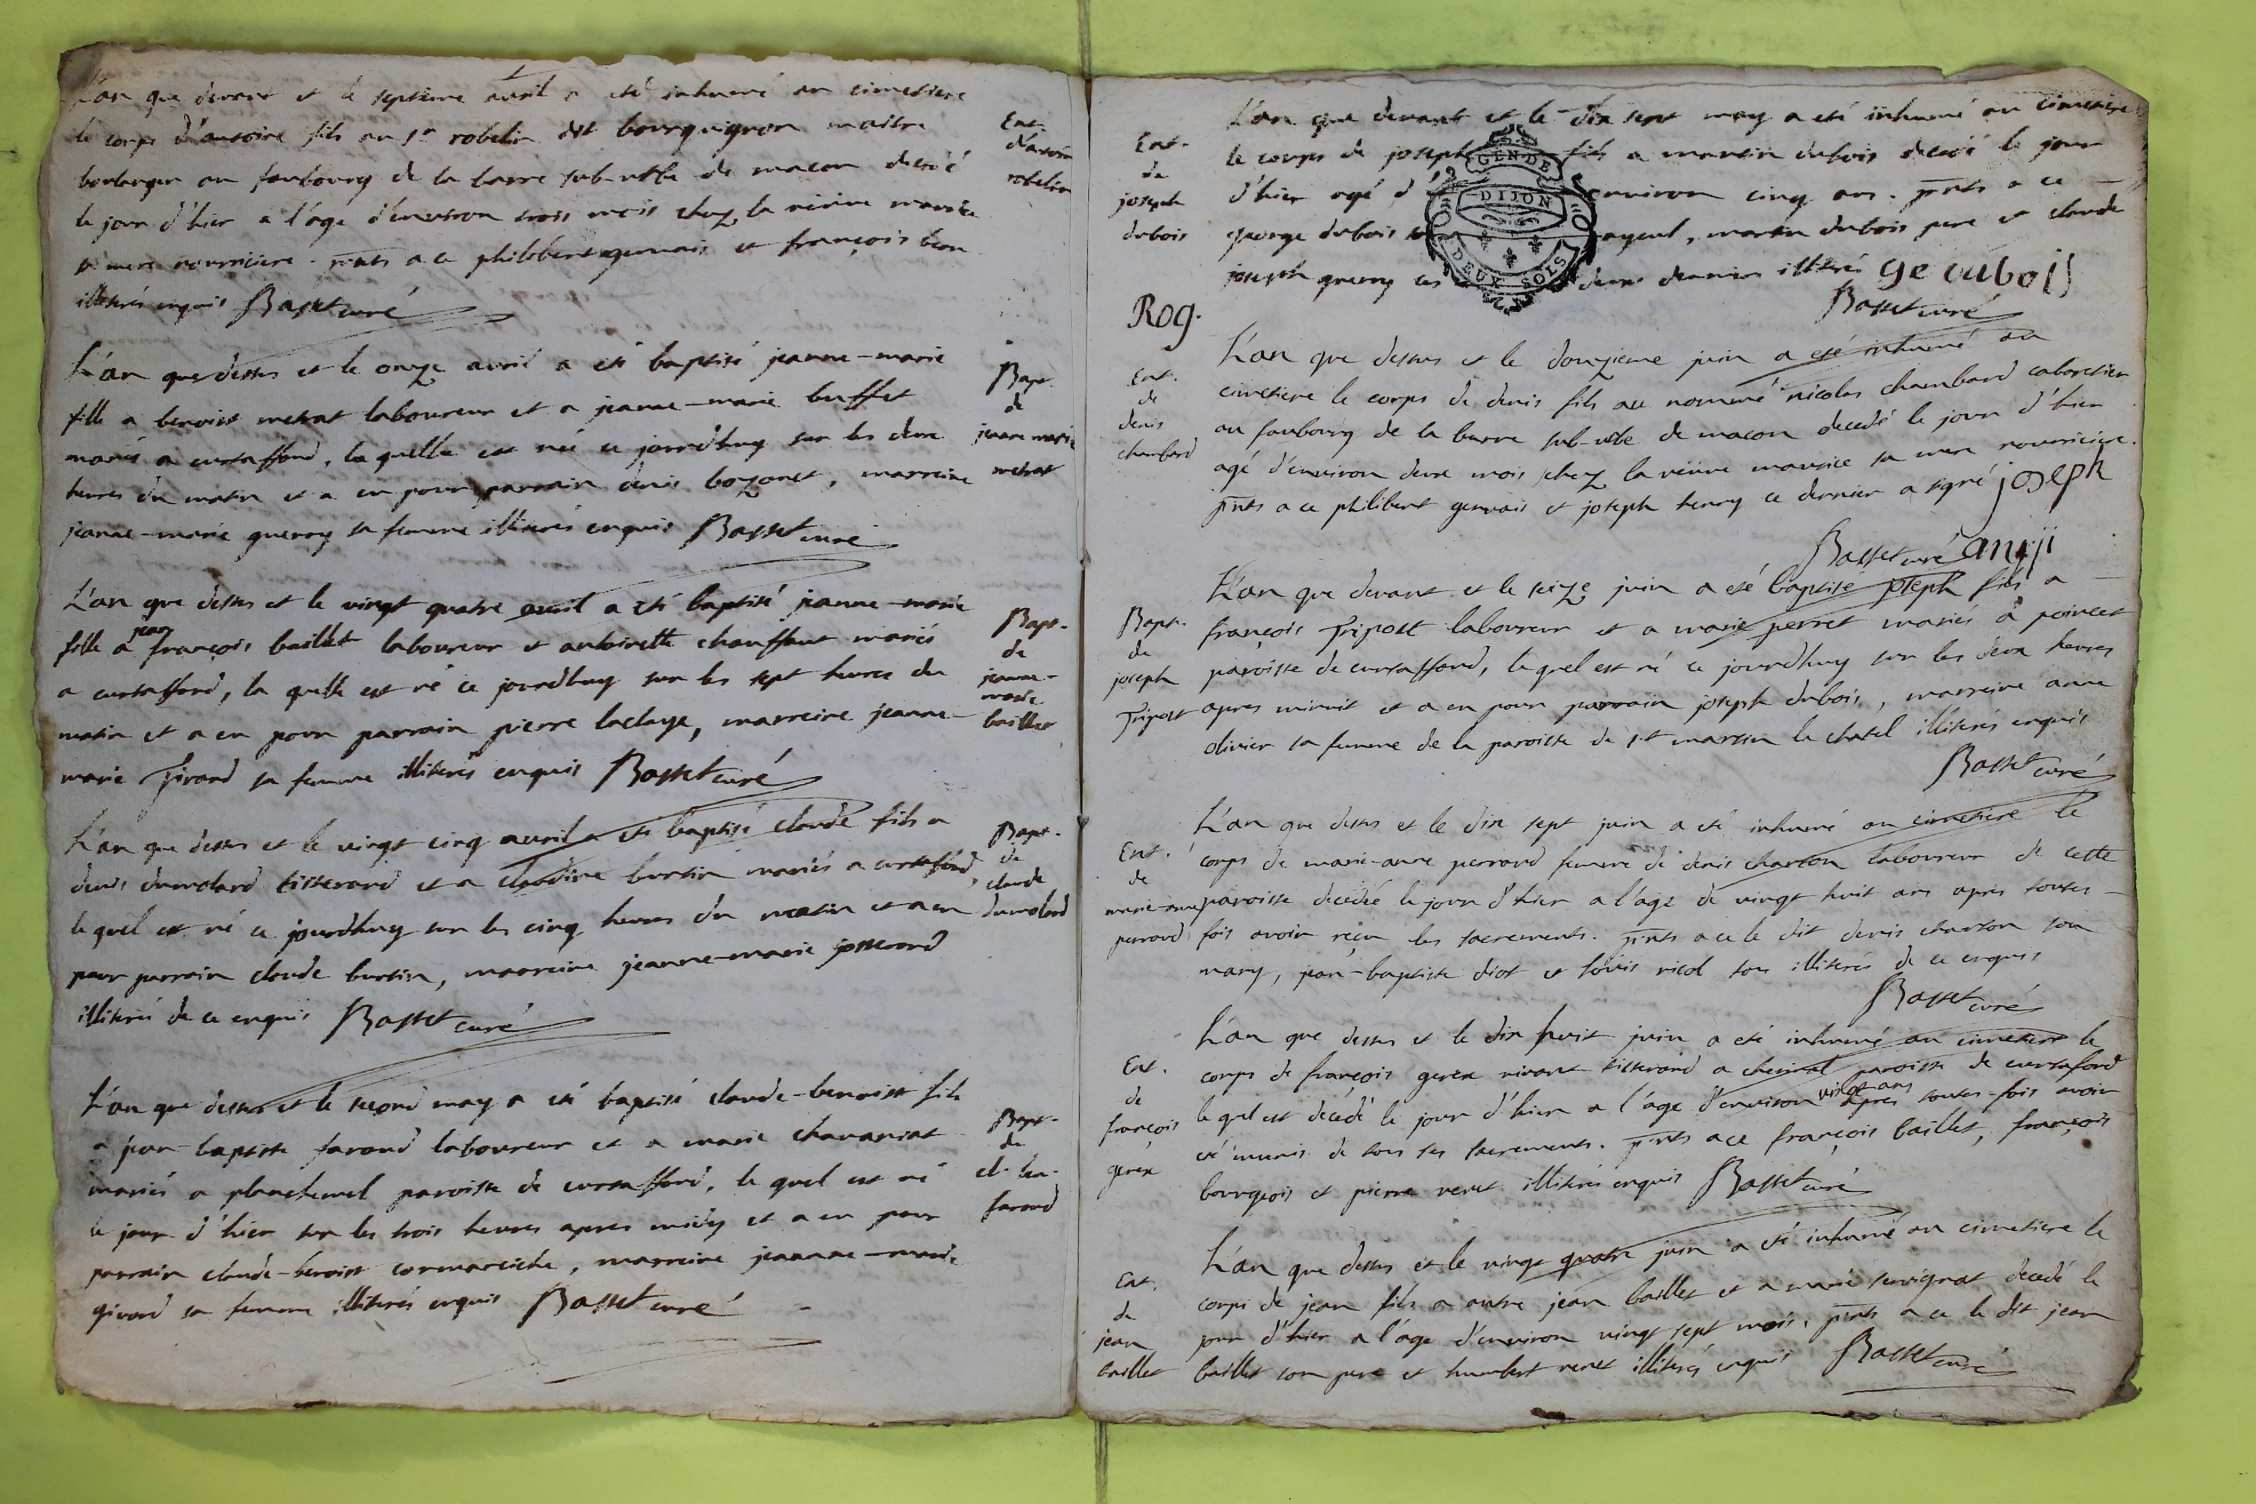 L'an que devant et le septieme avril a eté inhumé au cimetiere
le corps d'antoine fils au sr robelin dit bourguignon maitre
boulanger au faubourg de la barre sub-urbe de macon decedé
le jour d'hier a l'age d'environ trois mois chez la veuve maurice
sa mere nourriciere. pnts a ce philibert gervais et françois
illiterés enquis Basset curé
Ent.
d'antoine
robelin
L'an que dessus et le onze avril a eté baptisé jeanne-marie
fille a benoist metrat laboureur et a jeanne-marie buffet
mariés a curtaffond, la quelle est née ce jourdhuy sur les deux
heures du matin et a eu pour parrain denis bozonet, marreine
jeanne-marie guerry sa femme illiterés enquis Basset curé
Bapt.
de
jeanne marie
metrat
L'an que dessus et le vingt quatre avril a eté baptisé jeanne-marie
fille a jean françois baillet laboureur et antoinette chauffaut mariés
a curtaffond, la quelle est né ce jourdhuy sur les sept heures du
matin et a eu pour parrain pierre laclaye, marreine jeanne-
marie Tirand sa femme illiterés enquis Basset curé
Bapt.
de
jeanne-
marie
baillet
L'an que dessus et le vingt cinq avril a eté baptisé claude fils a
denis dumolard tisserand et a claudine burtin mariés a curtafond,
le quel est né ce jourdhuy sur les cinq heures du matin et a eu
pour parrain claude burtin, marreine jeanne-marie josserand
illiterés de ce enquis Basset curé
Bapt.
de
claude
dumolard
L'an que dessus et le second may a eté baptisé claude-benoist fils
a jean-baptiste farand laboureur et a marie chavaniat
mariés a planchemel paroisse de curtaffond, le quel est né
le jour d'hier sur les trois heures apres midy et a eu pour
parrain claude-benoist cormareche, marreine jeanne-marie
givord sa femme illiterés enquis Basset curé
Bapt.
de
cl. ben.
farand
L'an que devant et le dix sept may a eté inhumé au cimetiere
le corps de joseph fils a martin dubois decedé le jour
d'hier agé d'environ cinq ans. pnts a ce
george dubois son ayeul, martin dubois pere et claude
joseph guerry ces deux derniers illiterés ge dubois
Basset curé
GEN DE
DIJON
DEUX SOLS
Ent.
de
joseph
dubois
Rog.
L'an que dessus et le douzieme juin a eté inhumé au
cimetiere le corps de denis fils au nommé nicolas chambard cabaretier
au faubourg de la barre sub-urbe de macon decedé le jour d'hier
agé d'environ deux mois chez la veuve maurice sa mere nourriciere.
pnts a ce philibert gervais et joseph henry ce dernier a signé joseph
Basset curé anrji
Ent.
de
denis
chambard
L'an que devant et le seize juin a eté baptisé joseph fils a
françois Tripost laboureur et a marie perret mariés a poincet
paroisse de curtaffond, le quel est né ce jourdhuy sur les deux heures
apres minuit et a eu pour parrain joseph dubois, marreine anne
olivier sa femme de la paroisse de st martin le chatel illiterés enquis
Basset curé
Bapt.
de
joseph
Tripost
L'an que dessus et le dix sept juin a eté inhumé au cimetiere le
corps de marie-anne perraud femme de denis charton laboureur de cette
paroisse decedée le jour d'hier a l'age de vingt huit ans apres toutes-
fois avoir reçu les sacrements. pnts a ce le dit denis charton son
mary, jean-baptiste diot et louis nicol tous illiterés de ce enquis
Basset curé
Ent.
de
marie-anne
perraud
L'an que dessus et le dix huit juin a eté inhumé au cimetiere le
corps de françois gerex vivant tisserand a chevinal paroisse de curtafond
le quel est décédé le jour d'hier a l'age d'environ vingt ans apres toutes-fois avoir
eté munis de tous ses sacrements. pnts a ce françois baillet, françois
bourgeois et pierre veret illiterés enquis Basset curé
Ent.
de
françois
gerex
L'an que dessus et le vingt quatre juin a eté inhumé au cimetiere le
corps de jean fils a autre jean baillet et a marie servignat decedé le
jour d'hier a l'age d'environ vingt sept mois. pnts a ce le dit jean
baillet son pere et humbert veret illiterés enquis Basset curé
Ent.
de
jean
baillet